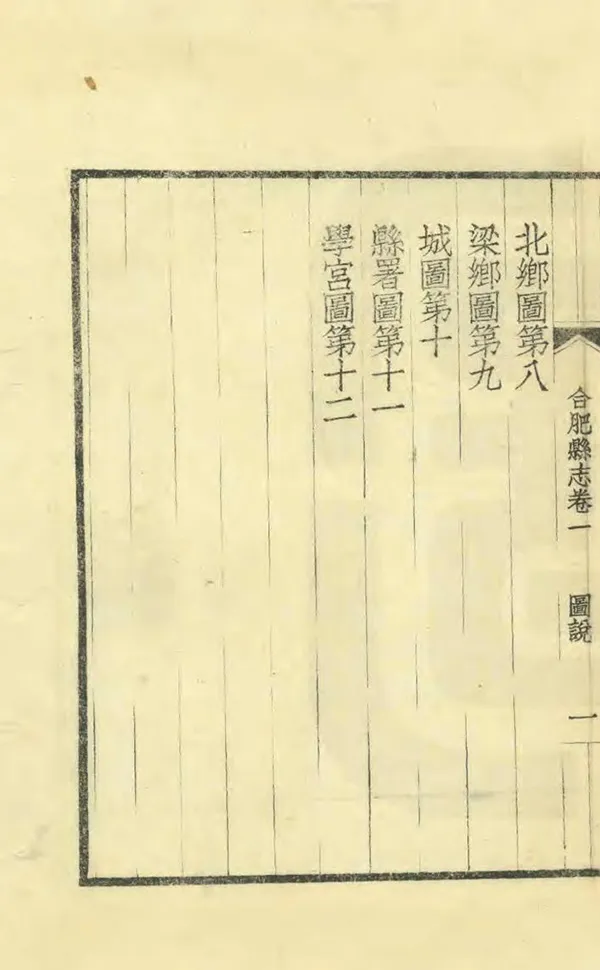 合肥縣志卷一
圖說
一
北鄉圖第八
梁鄉圖第九
城圖第十
縣署圖第十一
學宮圖第十二